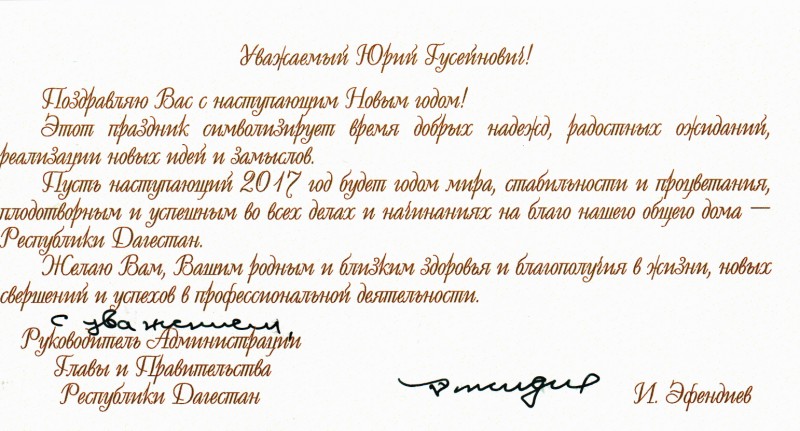 Уважаемый Юрий Гусейнович!
Поздравляю Вас с наступающим Новым годом!
Этот праздник символизирует время добрых надежд, радостных ожиданий,
реализации новых идей и замыслов.
Пусть наступающий 2017 год будет годом мира, стабильности и процветания,
плодотворным и успешным во всех делах и начинаниях на благо нашего общего дома —
Республики Дагестан.
Желаю Вам, Вашим родным и близким здоровья и благополучия в жизни, новых
свершений и успехов в профессиональной деятельности.
с уважением,
Руководитель Администрации
Главы и Правительства
Республики Дагестан
И. Эфендиев